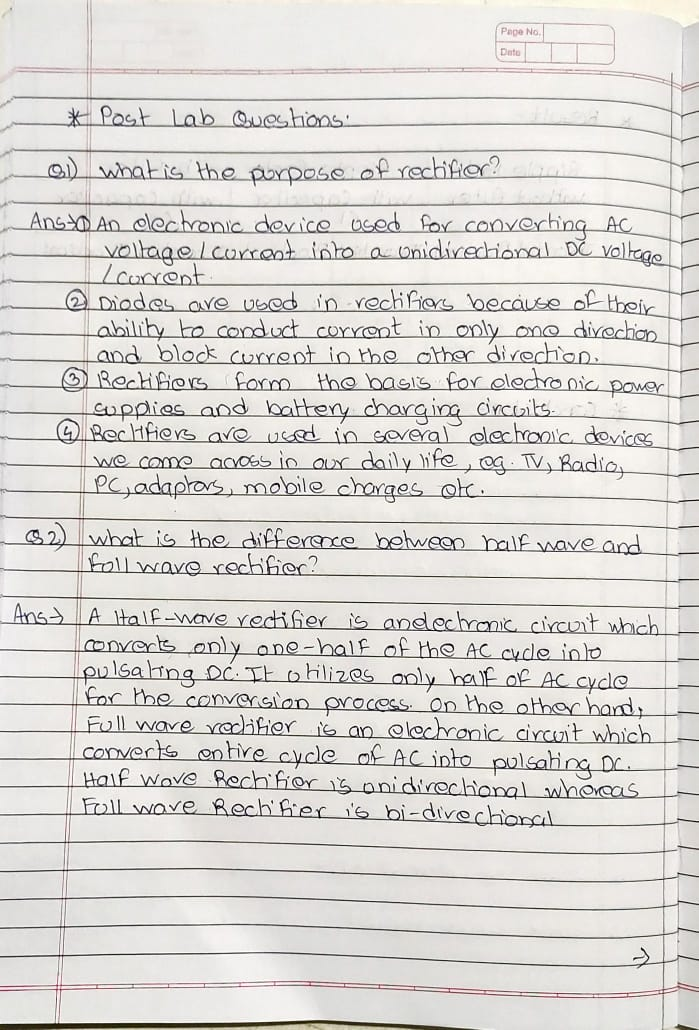 Page No.
Date
* Post Lab Questions.
Q1) what is the purpose of rectifier?
Ans→① An electronic device used for converting AC
voltage / current into a unidirectional DC voltage
/ current.
② Diodes are used in rectifiers because of their
ability to conduct current in only one direction
and block current in the other direction.
③ Rectifiers form the basis for electronic power
supplies and battery charging circuits.
④ Rectifiers are used in several electronic devices
we come across in our daily life, eg. TV, Radio,
PC, adaptors, mobile charges etc.
Q2) what is the difference between half wave and
full wave rectifier?
Ans→ A Half-wave rectifier is an electronic circuit which
converts only one-half of the AC cycle into
pulsating DC. It utilizes only half of AC cycle
for the conversion process. On the other hand,
Full wave rectifier is an electronic circuit which
converts entire cycle of AC into pulsating DC.
Half Wave Rectifier is unidirectional whereas
Full wave Rectifier is bi-directional
→